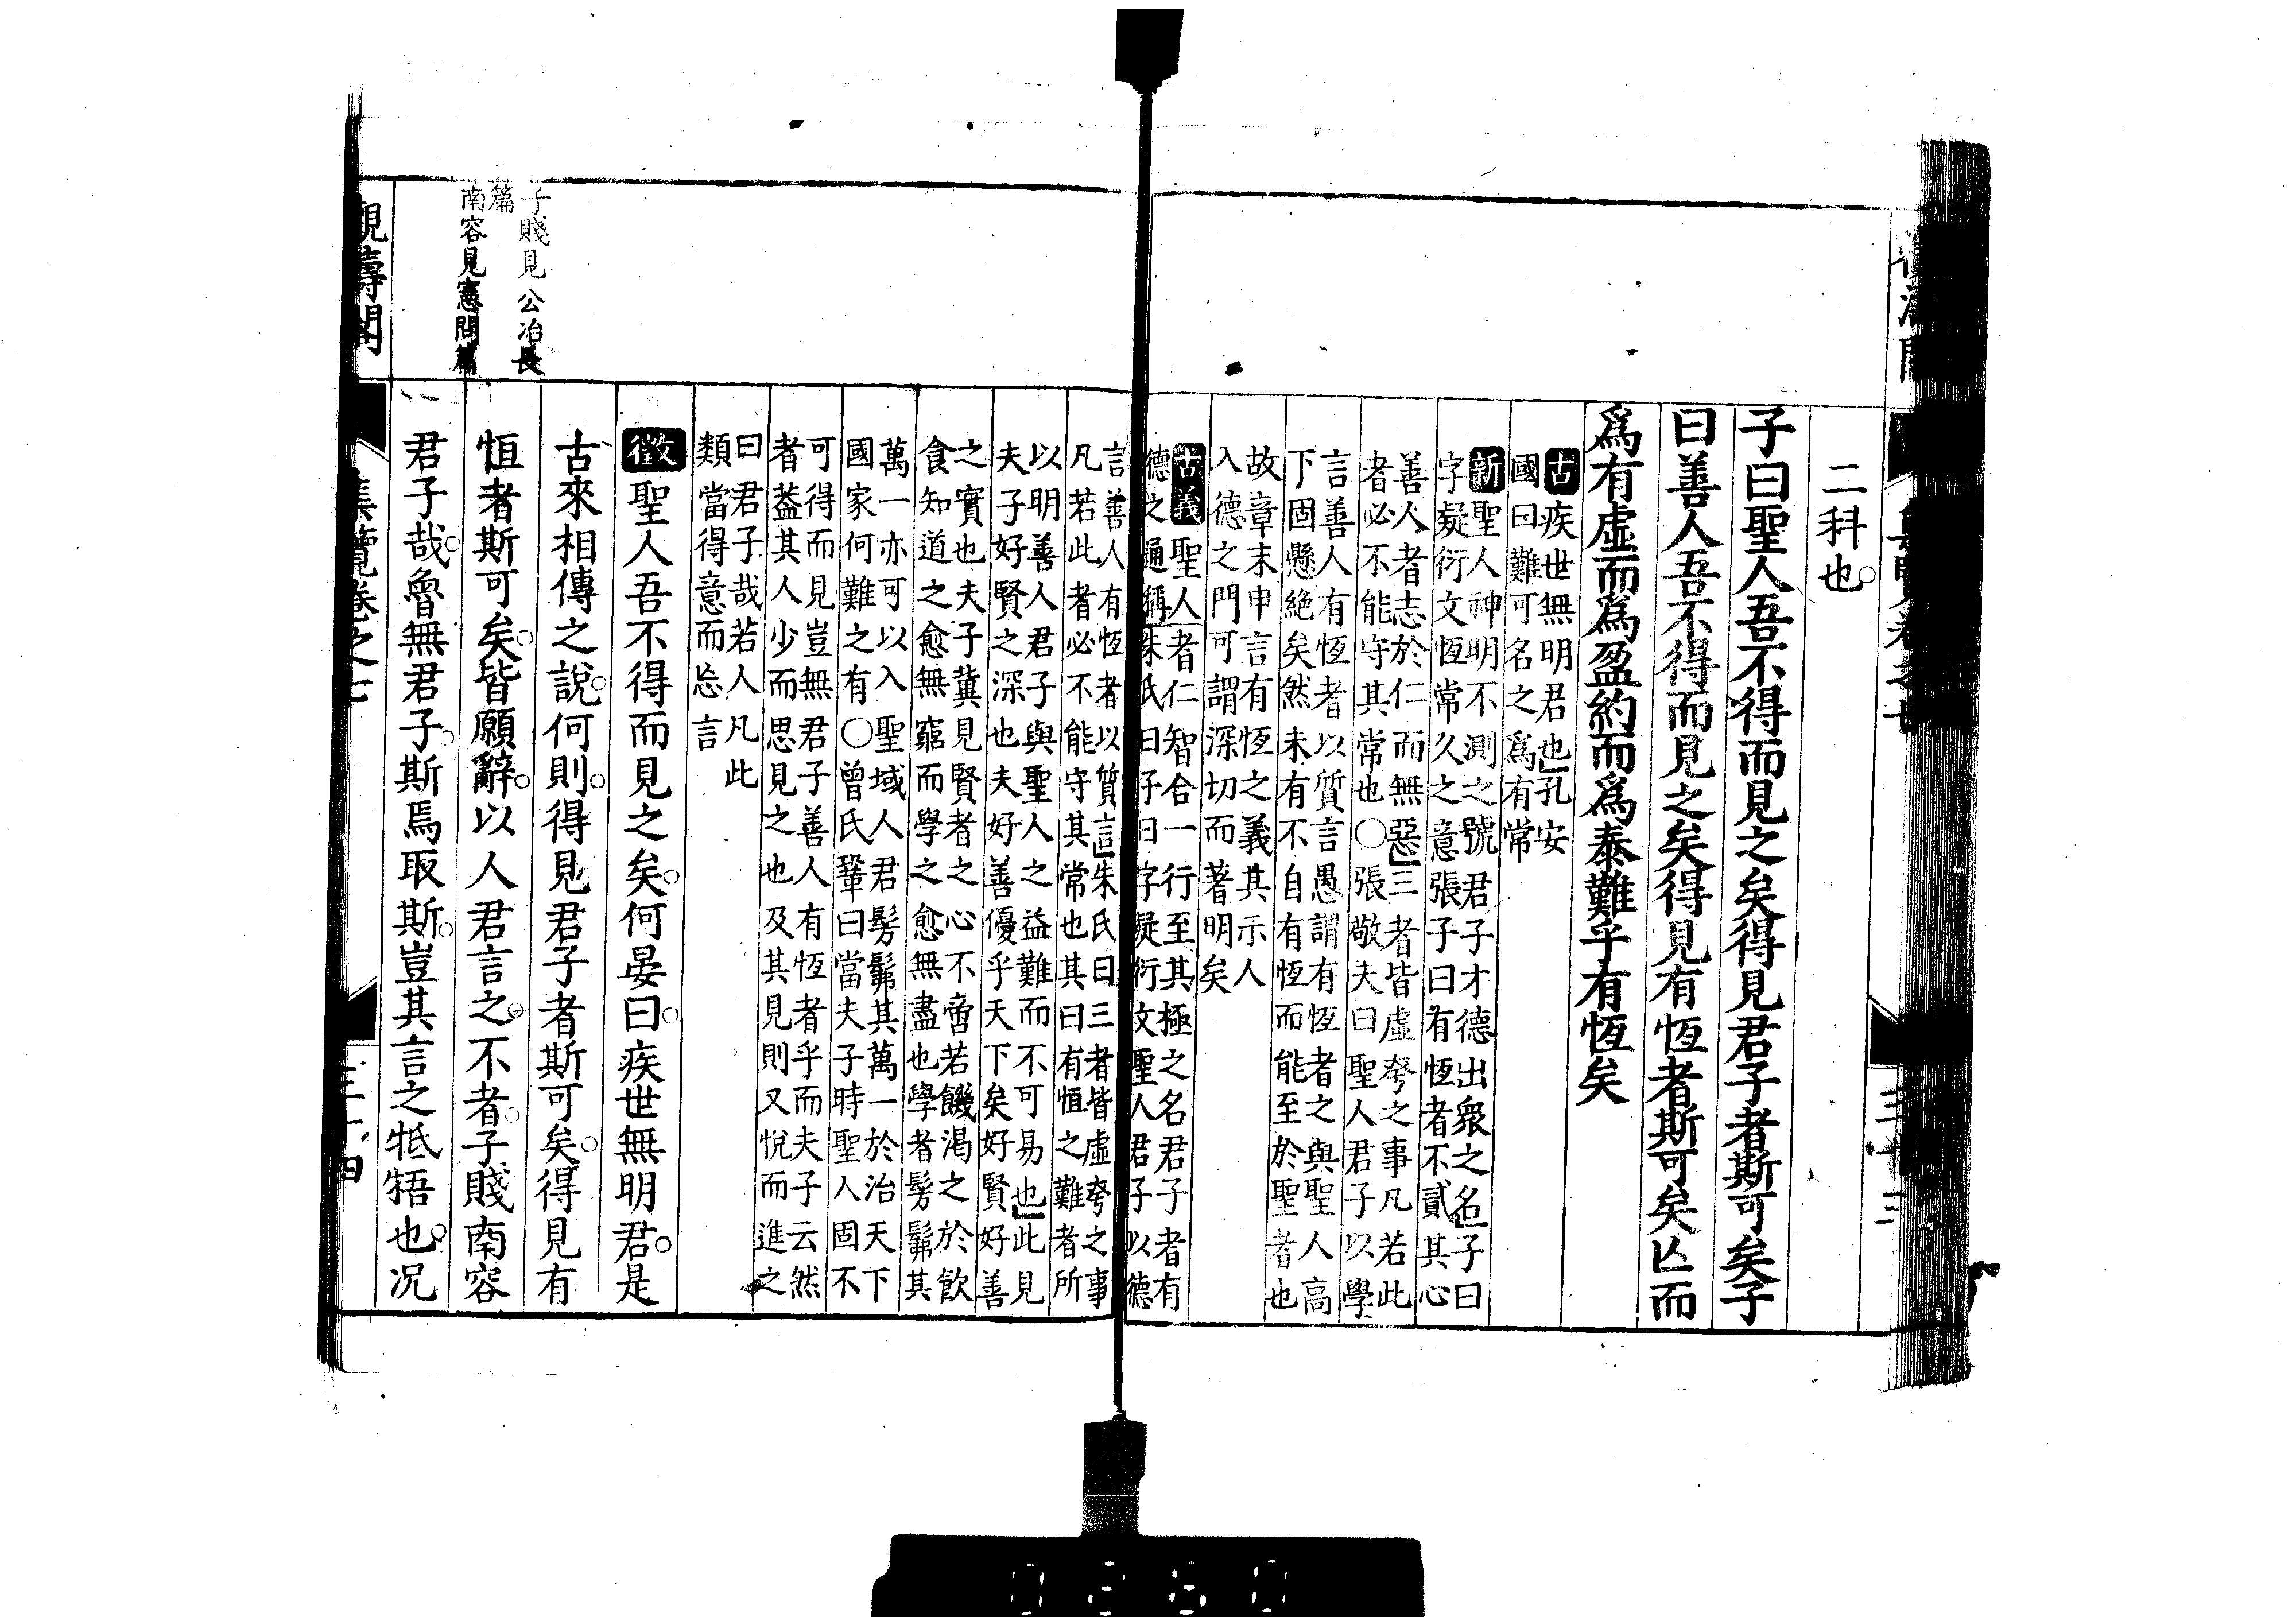 二科也
子曰聖人吾不得而見之矣得見君子者斯可矣子
曰善人吾不得而見之矣得見有恆者斯可矣亾而
爲有虛而爲盈約而爲泰難乎有恆矣
古疾世無明君也孔安
國曰難可名之爲有常
新聖人神明不測之號君子才德出衆之名子曰
字疑衍文恆常久之意張子曰有恆者不貳其心
善人者志於仁而無惡三者皆虛夸之事凡若此
者必不能守其常也○張敬夫曰聖人君子以學
言善人有恆者以質言愚謂有恆者之與聖人高
下固懸絶矣然未有不自有恆而能至於聖者也
故章末申言有恆之義其示人
入德之門可謂深切而著明矣
古義聖人者仁智合一行至其極之名君子者有
德之通稱朱氏曰子曰字疑衍文聖人君子以德
言善人有恆者以質言朱氏曰三者皆虛夸之事
凡若此者必不能守其常也其曰有恒之難者所
以明善人君子與聖人之益難而不可易也此見
夫子好賢之深也夫好善優乎天下矣好賢好善
之實也夫子冀見賢者之心不啻若饑渇之於飲
食知道之愈無窮而學之愈無盡也學者髣髴其
萬一亦可以入聖域人君髣髴其萬一於治天下
國家何難之有○曾氏鞏曰當夫子時聖人固不
可得而見豈無君子善人有恆者乎而夫子云然
者葢其人少而思見之也及其見則又悅而進之
曰君子哉若人凡此
類當得意而忘言
徵聖人吾不得而見之矣何晏曰疾世無明君是
古來相傳之說何則得見君子者斯可矣得見有
恒者斯可矣皆願辭以人君言之不者子賤南容
君子哉魯無君子斯焉取斯豈其言之牴牾也况
子賤見公冶長
篇
南容見憲問篇
觀濤閣
集覽卷之七
三十四